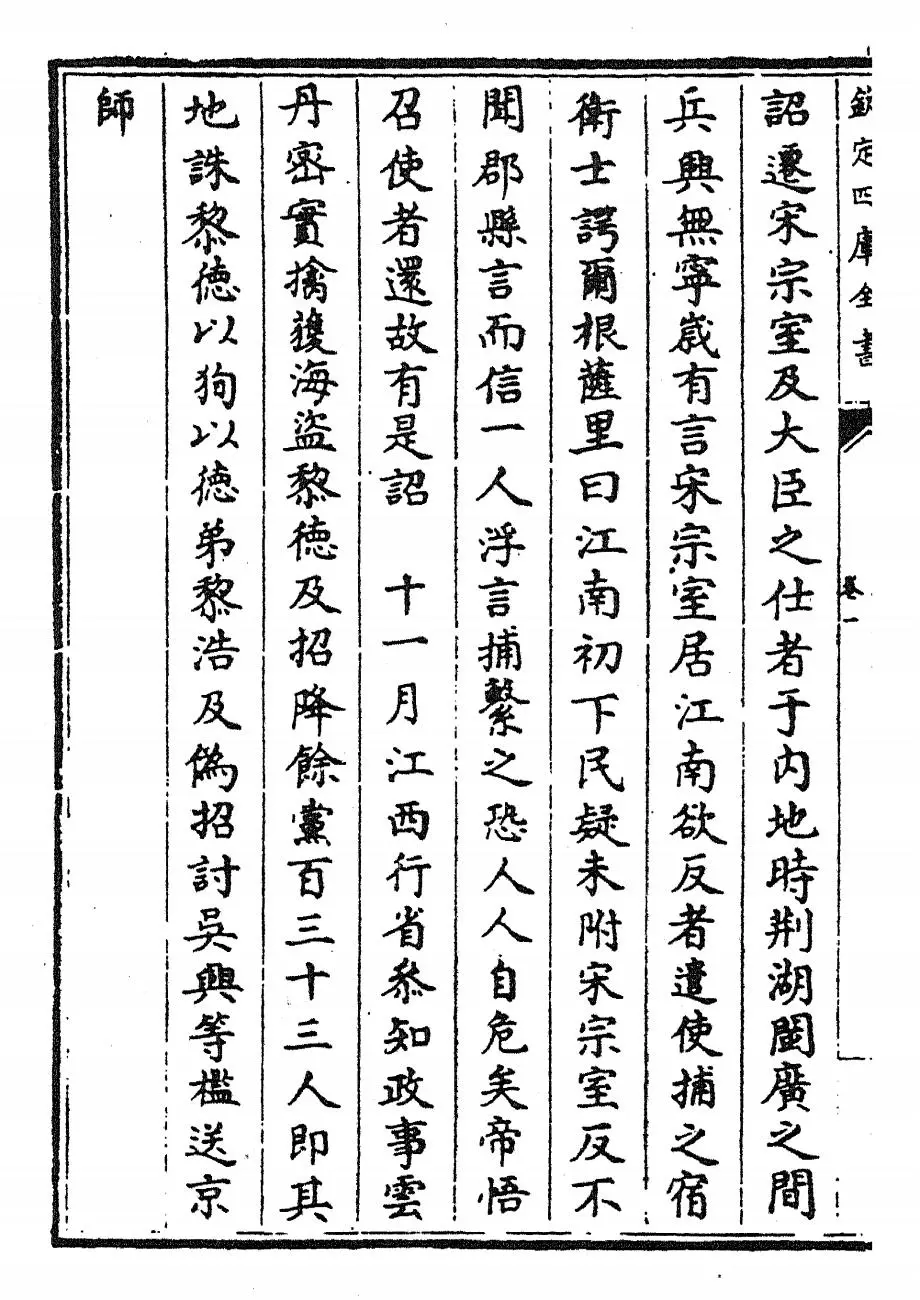 欽定四庫全書
卷一
詔遷宋宗室及大臣之仕者于内地時荆湖閩廣之間
兵興無寧歲有言宋宗室居江南欲反者遣使捕之宿
衛士諤爾根薩里曰江南初下民疑未附宋宗室反不
聞郡縣言而信一人浮言捕繫之恐人人自危矣帝悟
召使者還故有是詔　十一月江西行省叅知政事雲
丹密實擒獲海盜黎德及招降餘黨百三十三人即其
地誅黎德以狥以德弟黎浩及偽招討吳興等檻送京
師